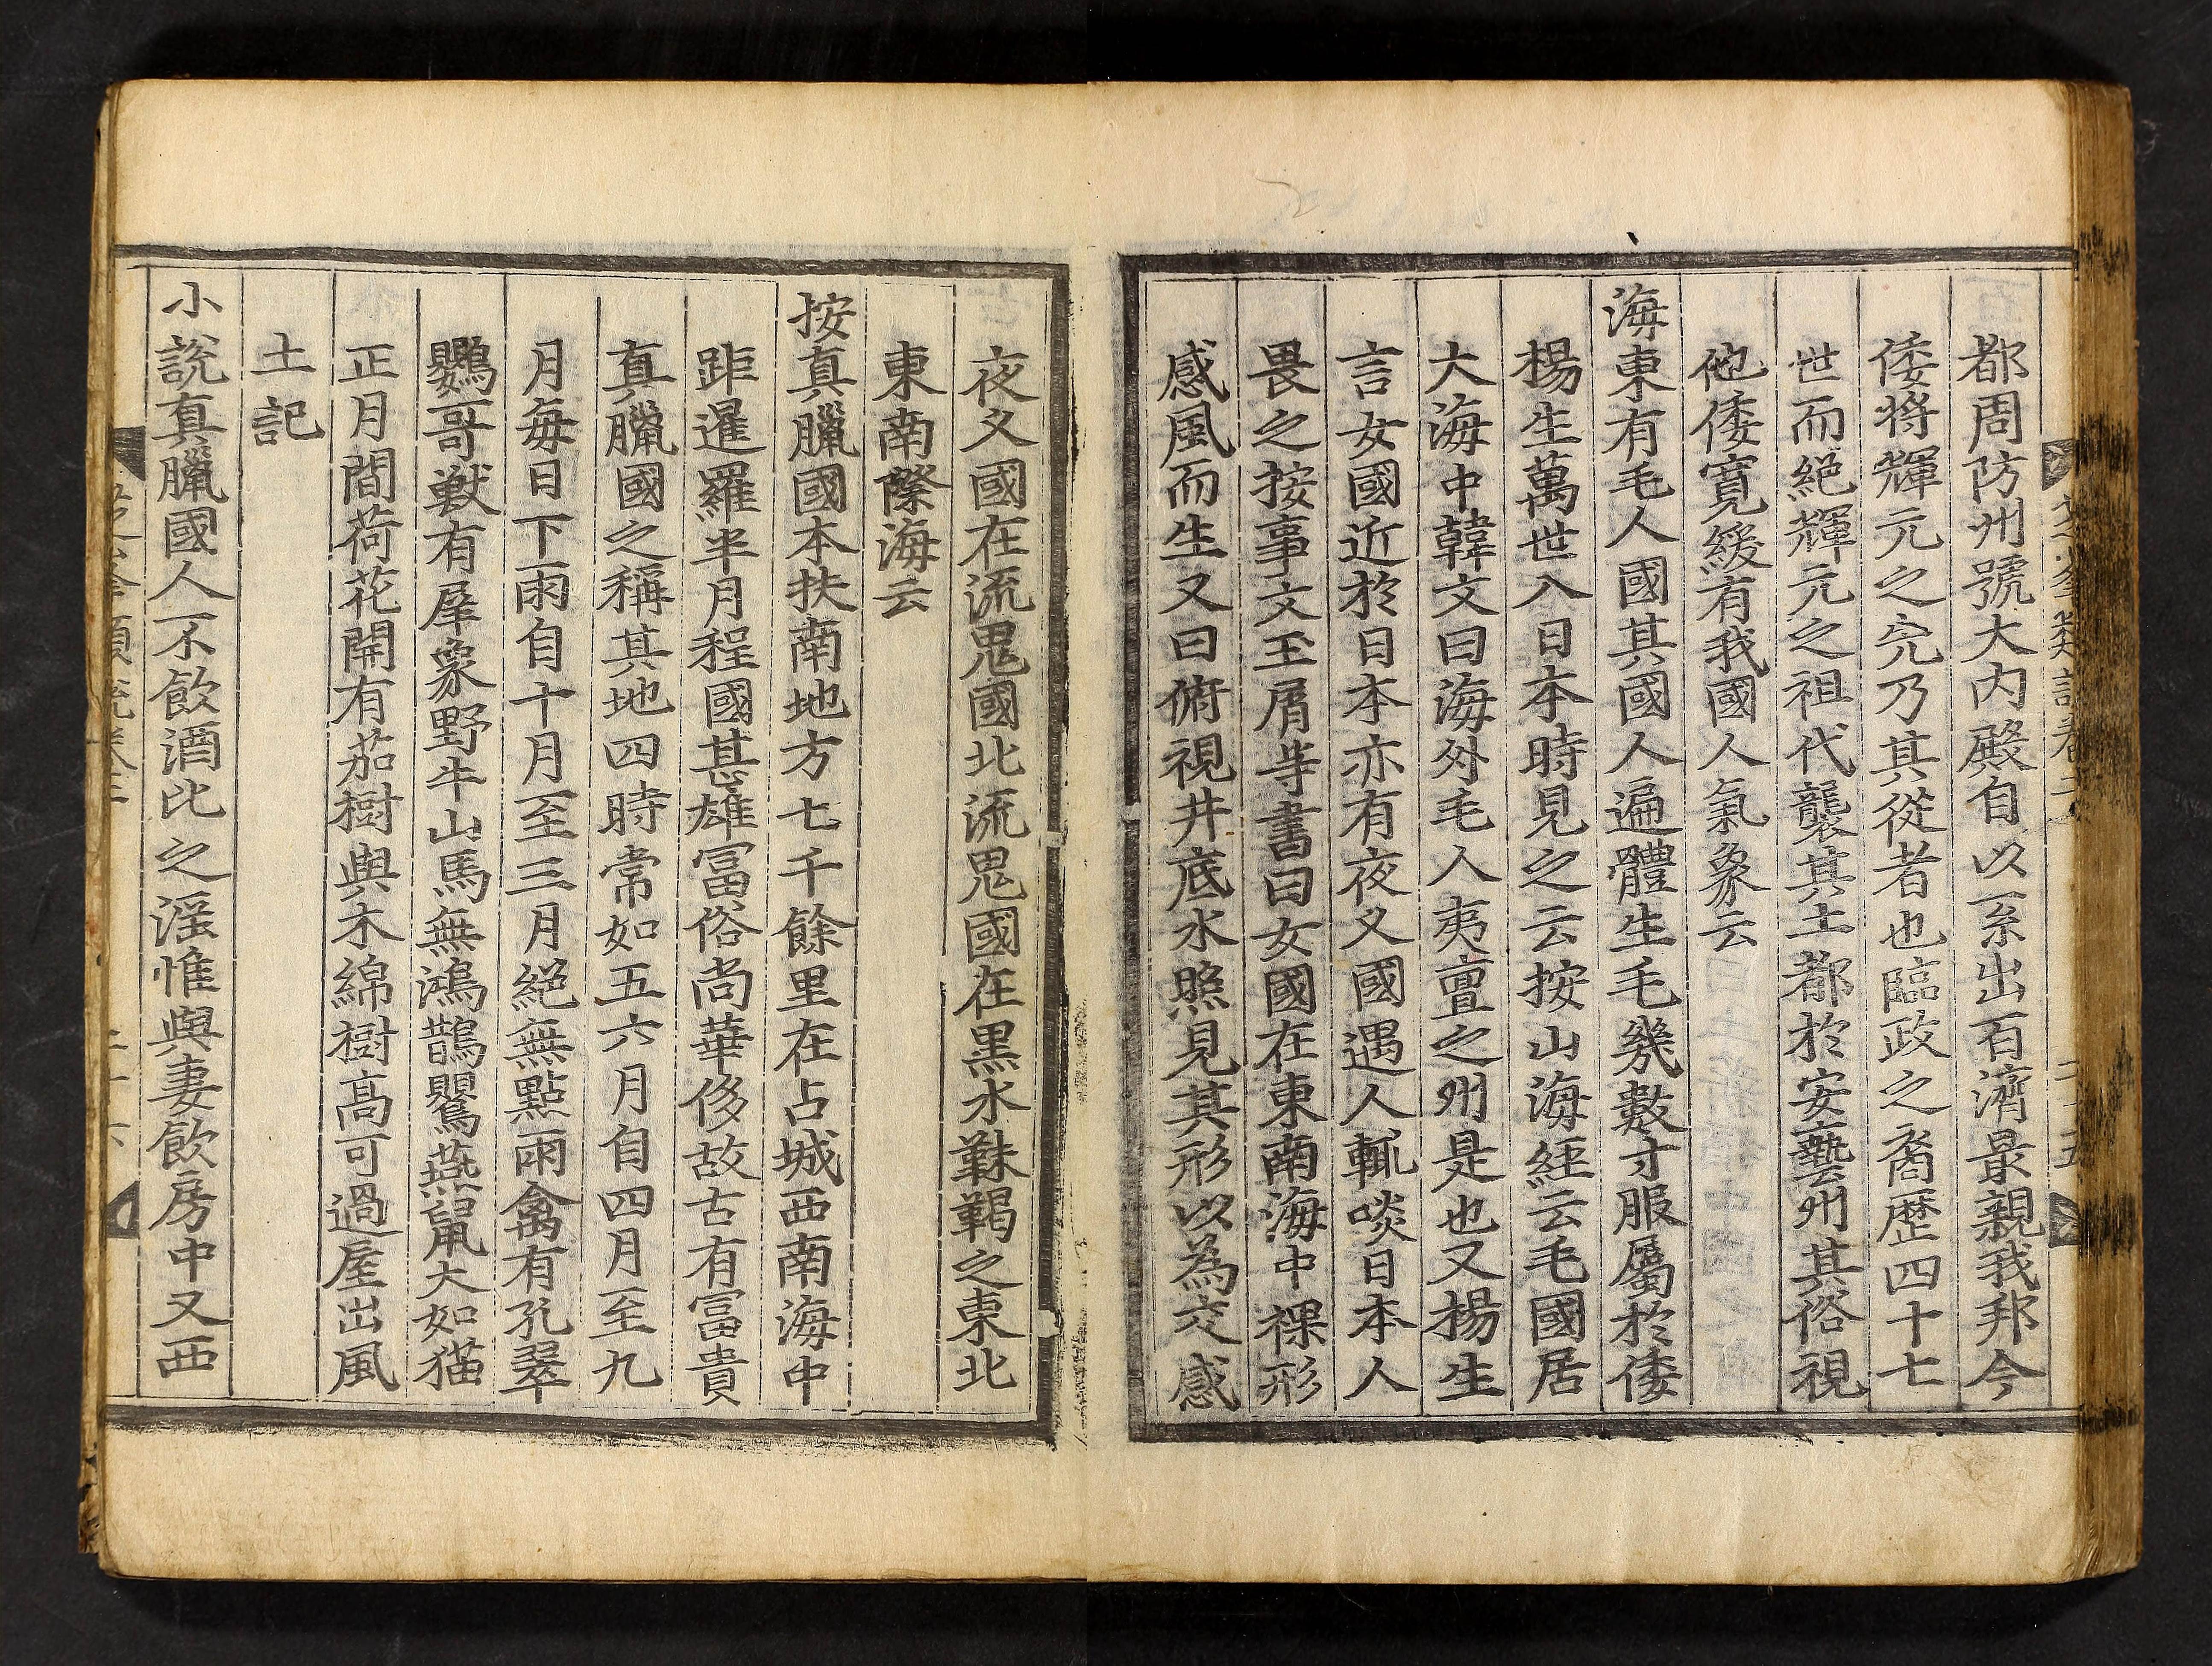 都周防州號大內殿自以系出百濟最親我邦今
倭將輝元之先乃其從者也臨政之裔歷四十七
世而絕輝元之祖代襲其土都於安藝州其俗視
他倭寬緩有我國人氣象云
海東有毛人國其國人遍體生毛幾數寸服屬於倭
楊生萬世入日本時見之云按山海經云毛國居
大海中韓文曰海外毛人夷亶之州是也又楊生
言女國近於日本亦有夜叉國遇人輒啖日本人
畏之按事文玉屑等書曰女國在東南海中裸形
感風而生又曰俯視井底水照見其形以為交感
夜叉國在流鬼國北流鬼國在黑水靺鞨之東北
東南際海云
按真臘國本扶南地方七千餘里在占城西南海中
距暹羅半月程國甚雄冨俗尚華侈故古有冨貴
真臘國之稱其地四時常如五六月自四月至九
月每日下雨自十月至三月絕無點雨禽有孔翠
鸚哥獸有犀象野牛山馬無鴻鵲鸎燕鼠大如猫
正月間荷花開有茄樹與木綿樹高可過屋出風
土記
小說真臘國人不飲酒比之淫惟與妻飲房中又西
芝峯類說卷二
二十五